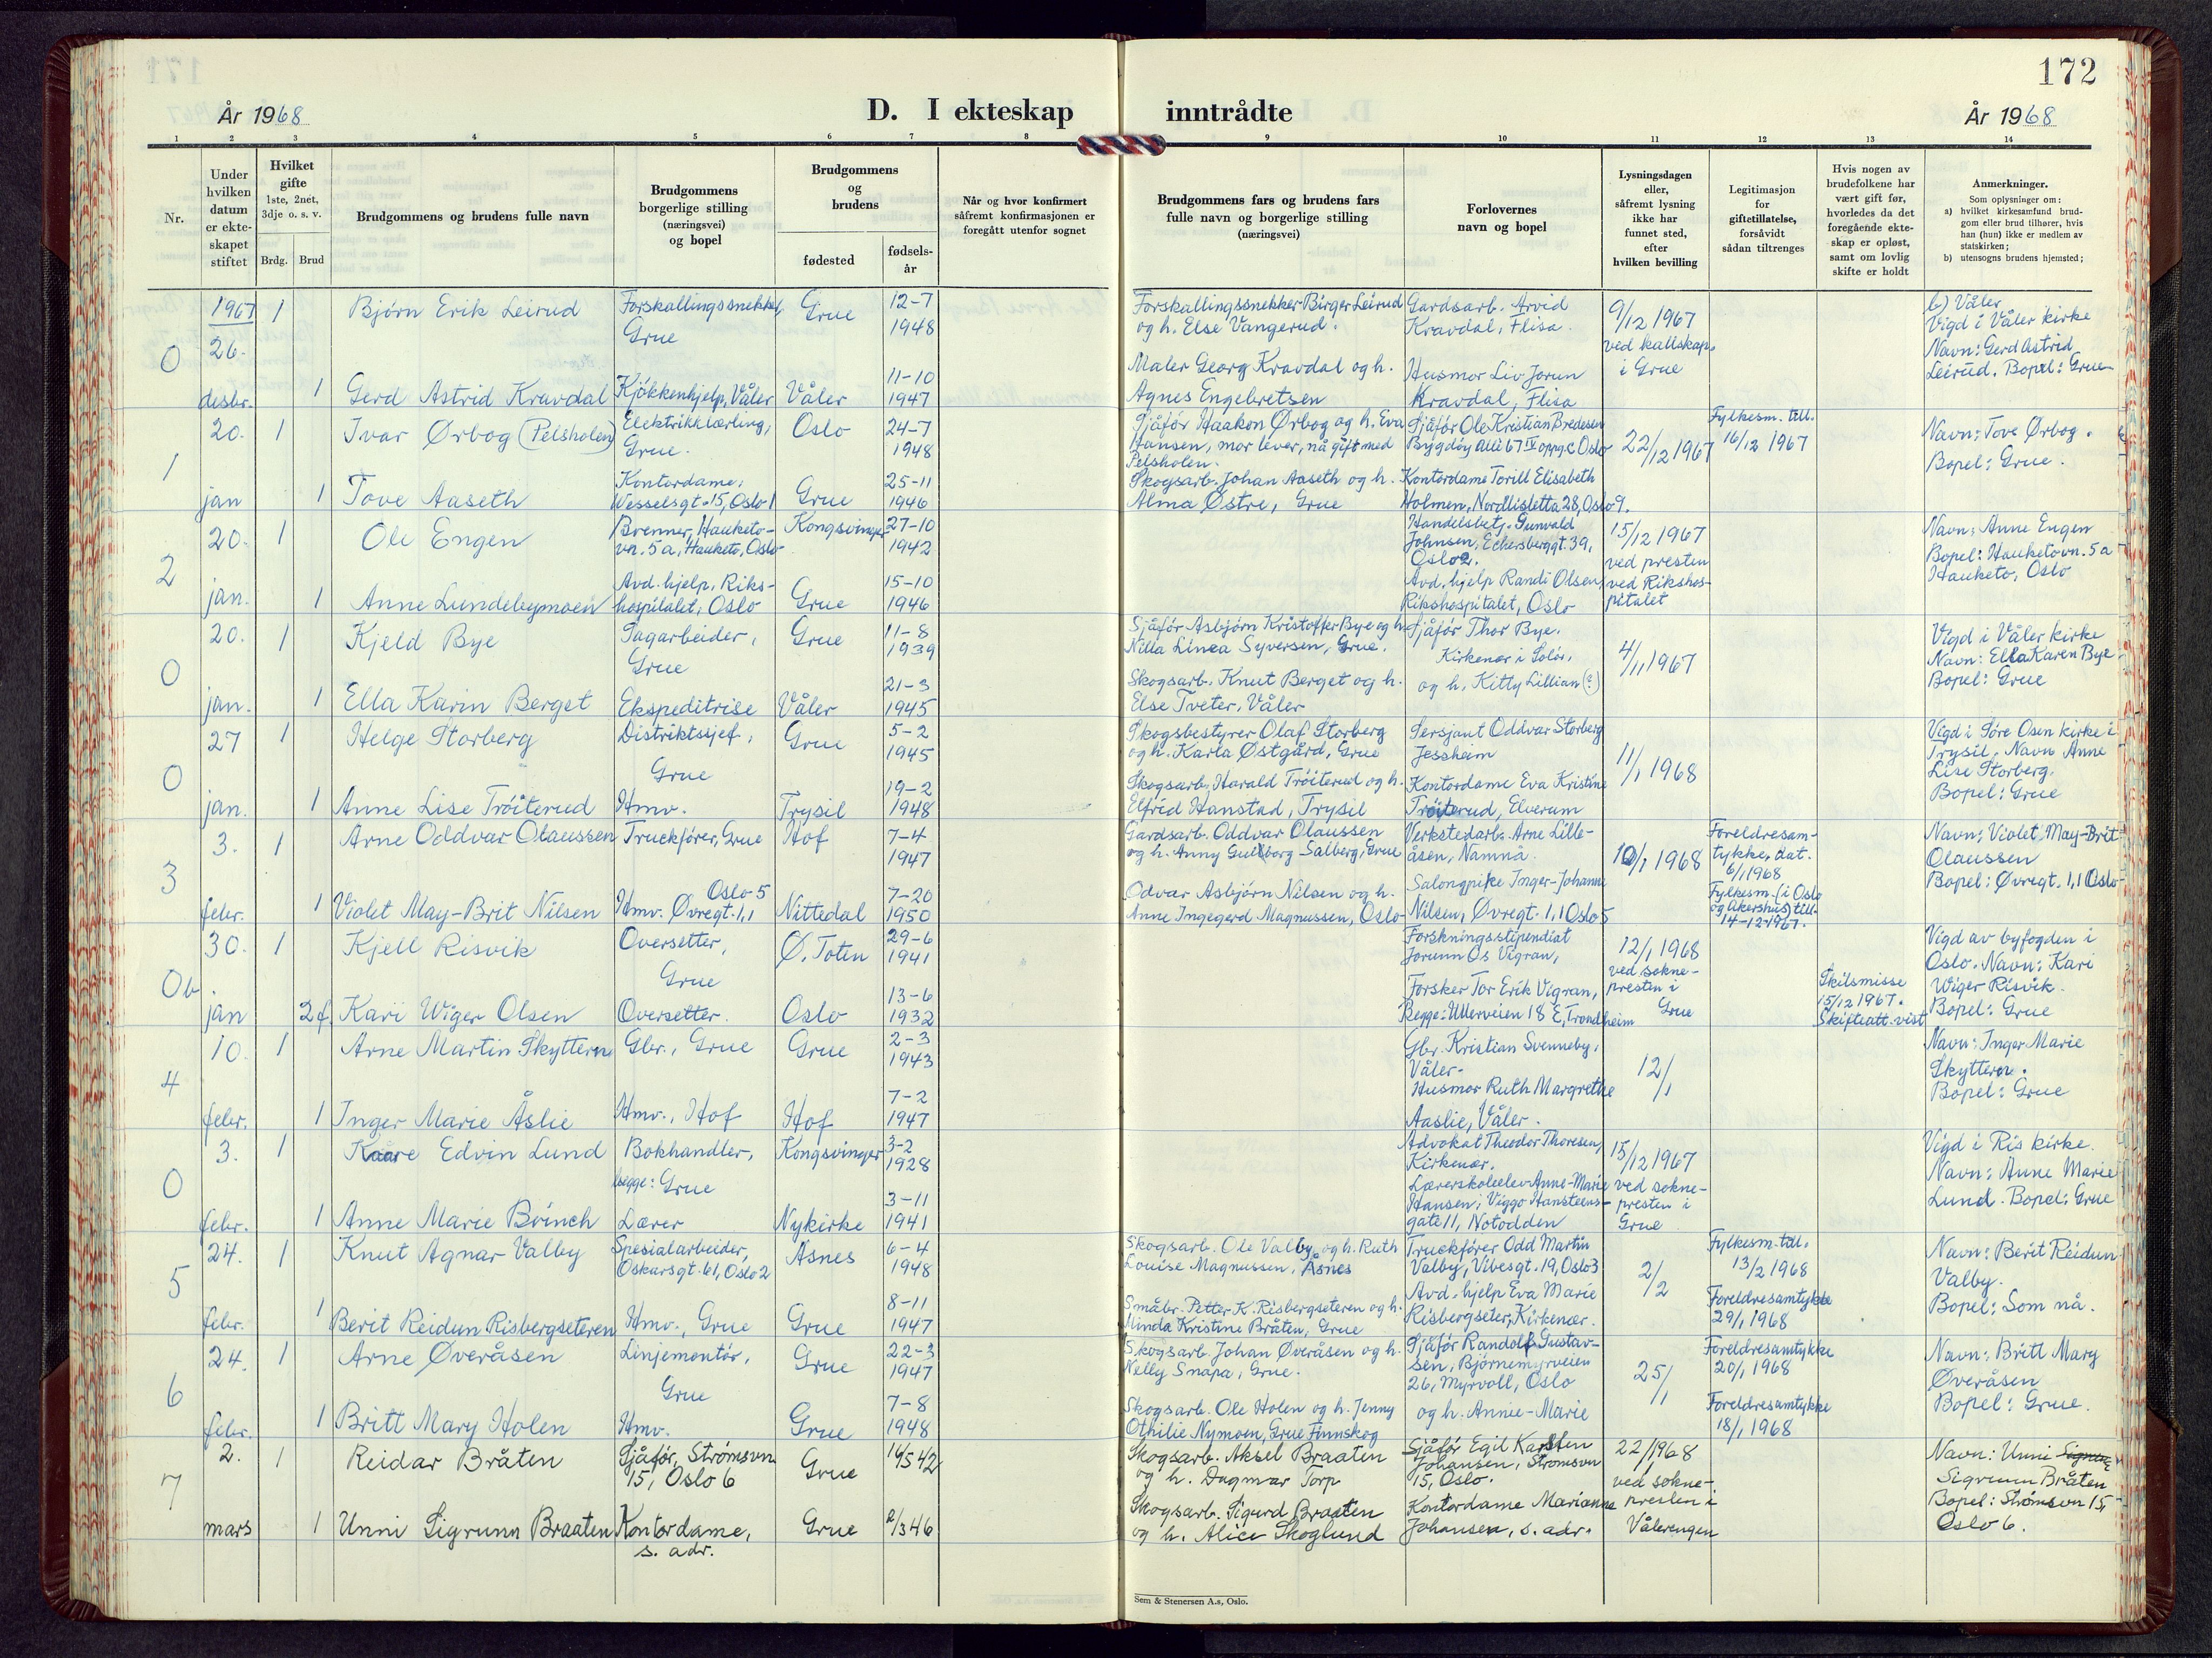 172
År 1968
D. I ekteskap inntrådte
År 1968
1 2 3 4 5 6 7 8 9 10 11 12 13 14
Nr.
Under hvilken datum er ekteskapet stiftet
Hvilket gifte 1ste, 2net, 3dje o. s. v.
Brdg. Brud
Brudgommens og brudens fulle navn
Brudgommens borgerlige stilling (næringsvei) og bopel
Brudgommens og brudens
fødested
fødsels-år
Når og hvor konfirmert såfremt konfirmasjonen er foregått utenfor sognet
Brudgommens fars og brudens fars fulle navn og borgerlige stilling (næringsvei)
Forlovernes navn og bopel
Lysningsdagen eller, såfremt lysning ikke har funnet sted, efter hvilken bevilling
Legitimasjon for giftetillatelse, forsåvidt sådan tiltrenges
Hvis nogen av brudefolkene har vært gift før, hvorledes da det foregående ekteskap er opløst, samt om lovlig skifte er holdt
Anmerkninger.
Som oplysninger om:
a) hvilket kirkesamfund brudgom eller brud tilhører, hvis han (hun) ikke er medlem av statskirken;
b) utensogns brudens hjemsted;
0 1967 26. desbr.
1 Bjørn Erik Leirud Forskallingssnekker, Grue Grue 12-7 1948
Forskallingssnekker Birger Leirud og h. Else Vangerud.
Gardsarb. Arvid Kravdal, Flisa.
9/12 1967 ved kallskap. i Grue
b) Våler Vigd i Våler kirke Navn: Gerd Astrid Leirud. Bopel: Grue
1 Gerd Astrid Kravdal Kjøkkenhjelp, Våler Våler 11-10 1947
Maler Georg Kravdal og h. Agnes Engebretsen
Husmor Liv Jorun Kravdal, Flisa
1 20. jan
1 Ivar Ørbog (Pelsholen) Elektrikklærling, Grue. Oslo 24-7 1948
Sjåfór Haakon Ørbog og h. Eva Hansen, mor lever, nå gift med Pelsholen.
Sjåfór Ole Kristian Bredesen Bygdøy Allé 67 IV oppg. C Oslo
22/12 1967
Fylkesm. till. 16/12 1967
Navn: Tove Ørbog. Bopel: Grue.
1 Tove Aaseth Kontordame, Wesselsgt. 15, Oslo 1 Grue 25-11 1946
Skogsarb. Johan Aaseth og h. Alma Østre, Grue
Kontordame Torill Elisabeth Holmen, Nordlisletta 28, Oslo 9.
2 20. jan.
1 Ole Engen Brenner, Hauketo-vn. 5a, Hauketo, Oslo Kongsvinger 27-10 1942
Handelsbetj. Gunvald Johnsen, Eckersberggt. 39, Oslo 2.
15/12 1967 ved presten ved Rikshospitalet
Navn: Anne Engen Bopel: Hauketovn. 5a Hauketo, Oslo
1 Anne Lundebymoen Avd. hjelp, Rikshospitalet, Oslo Grue 15-10 1946
Avd. hjelp Randi Olsen, Rikshospitalet, Oslo
0 20. jan.
1 Kjeld Bye Sagarbeider, Grue Grue 11-8 1939
Sjåfór Asbjørn Kristoffer Bye og h. Nilla Linea Syversen, Grue.
Sjåfór Thor Bye. Kirkenær i Solør,
4/11 1967
Vigd i Våler kirke Navn: Ella Karen Bye. Bopel: Grue
1 Ella Karin Berget Ekspeditrise Våler 21-3 1945
Skogsarb. Knut Berget og h. Else Tveter, Våler
og h. Kitty Lillian
0 27 jan.
1 Helge Storberg Distriktssjef, Grue Grue 5-2 1945
Skogsbestyrer Olaf Storberg og h. Karla Østgård, Grue
Sersjant Oddvar Storberg Jessheim
11/1 1968
Vigd i Søre Osen kirke i Trysil. Navn Anne Lise Storberg. Bopel: Grue
1 Anne Lise Tröiterud Hmv. Trysil 19-2 1948
Skogsarb. Harald Tröiterud og h. Elfrid Hanstad, Trysil
Kontordame Eva Kristine Tröiterud, Elverum
3 3. febr.
1 Arne Oddvar Olaussen Truckfører, Grue Hof 7-4 1947
Gardsarb. Oddvar Olaussen og h. Anny Guilborg Salberg, Grue
Verkstedarb. Arne Lille-åsen, Namnå.
10/1 1968
Foreldresamtykke, dat. 6/1 1968
Navn: Violet May-Brit Olaussen Bopel: Øvregt. 1, 1 Oslo
1 Violet May-Brit Nilsen Hmv. Øvregt. 1, 1 Oslo 5 Nittedal 7-20 1950
Odvar Asbjørn Nilsen og h. Anne Ingegerd Magnussen, Oslo
Salongpike Inger-Johanne Nilsen, Øvregt. 1, 1 Oslo 5
Fylkesm. (i Oslo og Akershus) till. 14-12-1967.
0b. 30. jan
1 Kjell Risvik Oversetter, Grue Ø. Toten 29-6 1941
Forskningsstipendiat Jorunn Os Vigran,
12/1 1968 ved sokne-presten i Grue
Vigd av byfogden i Oslo. Navn: Kari Wiger Risvik. Bopel: Grue
2 f. Kari Wiger Olsen Oversetter. Oslo 13-6 1932
Forsker Tor Erik Vigran, Begge: Ullerveien 18 E, Trondheim
Skilsmisse 15/12 1967. Skifteatt. vist
4 10. febr.
1 Arne Martin Skytteren Gbr., Grue Grue 2-3 1943
Gbr. Kristian Svenneby, Våler.
12/1
Navn: Inger Marie Skytteren. Bopel: Grue
1 Inger Marie Åslie Hmv., Hof Hof 7-2 1947
Husmor Ruth Margrethe Aaslie, Våler.
0 3. febr.
1 Kaare Edvin Lund Bokhandler, begge: Grue Kongsvinger 3-2 1928
Advokat Theodor Thoresen, Kirkenær.
15/12 1967 ved sokne-presten i Grue
Vigd i Ris kirke. Navn: Anne Marie Lund. Bopel: Grue
1 Anne Marie Brinch Lærer Nykirke 3-11 1941
Lærerskoleelev Anne-Marie Hansen, Viggo Hansteens-gate 11, Notodden
5 24. febr.
1 Knut Agnar Valby Spesialarbeider, Oskarsgt. 61, Oslo 2 Åsnes 6-4 1948
Skogsarb. Ole Valby og h. Ruth Louise Magnussen, Åsnes
Truckfører Odd Martin Valby, Vibesgt. 19, Oslo 3
2/2
Fylkesm. till. 13/2 1968
Navn: Berit Reidun Valby. Bopel: Som nå.
1 Berit Reidun Risbergseteren Hmv., Grue Grue 8-11 1947
Småbr. Petter K. Risbergseteren og h. Minda Kristine Bråten, Grue
Avd. hjelp Eva Marie Risbergseter, Kirkenær.
Foreldresamtykke 29/1 1968
6 24. febr.
1 Arne Øveråsen Linjemontör, Grue Grue 22-3 1947
Skogsarb. Johan Øveråsen og h. Nelly Snapa, Grue.
Sjåfór Randolf Gustavsen, Bjørnemyrveien 26, Myrvoll, Oslo
25/1
Foreldresamtykke 20/1 1968
Navn: Britt Mary Øveråsen Bopel: Grue.
1 Britt Mary Holen Hmv. Grue 7-8 1948
Skogsarb. Ole Holen og h. Jenny Othilie Nymoen, Grue Finnskog
og h. Annie-Marie
Foreldresamtykke 18/1 1968
7 2. mars
1 Reidar Bråten Sjåfór, Strømsvn 15, Oslo 6 Grue 16/5 42
Skogsarb. Aksel Braaten og h. Dagmar Torp
Sjåfór Egil Karsten Johansen, Strømsvn 15, Oslo.
22/1 1968 ved sokne-presten i Vålerengen
Navn: Unni Sigrunn Bråten Bopel: Strømsvn 15, Oslo 6.
1 Unni Sigrunn Braaten Kontordame, s. adr. Grue 2/3 46
Skogsarb. Sigurd Braaten og h. Alice Skoglund
Kontordame Marianne Johansen, s. adr.
Sem & Stenersen A.s, Oslo.